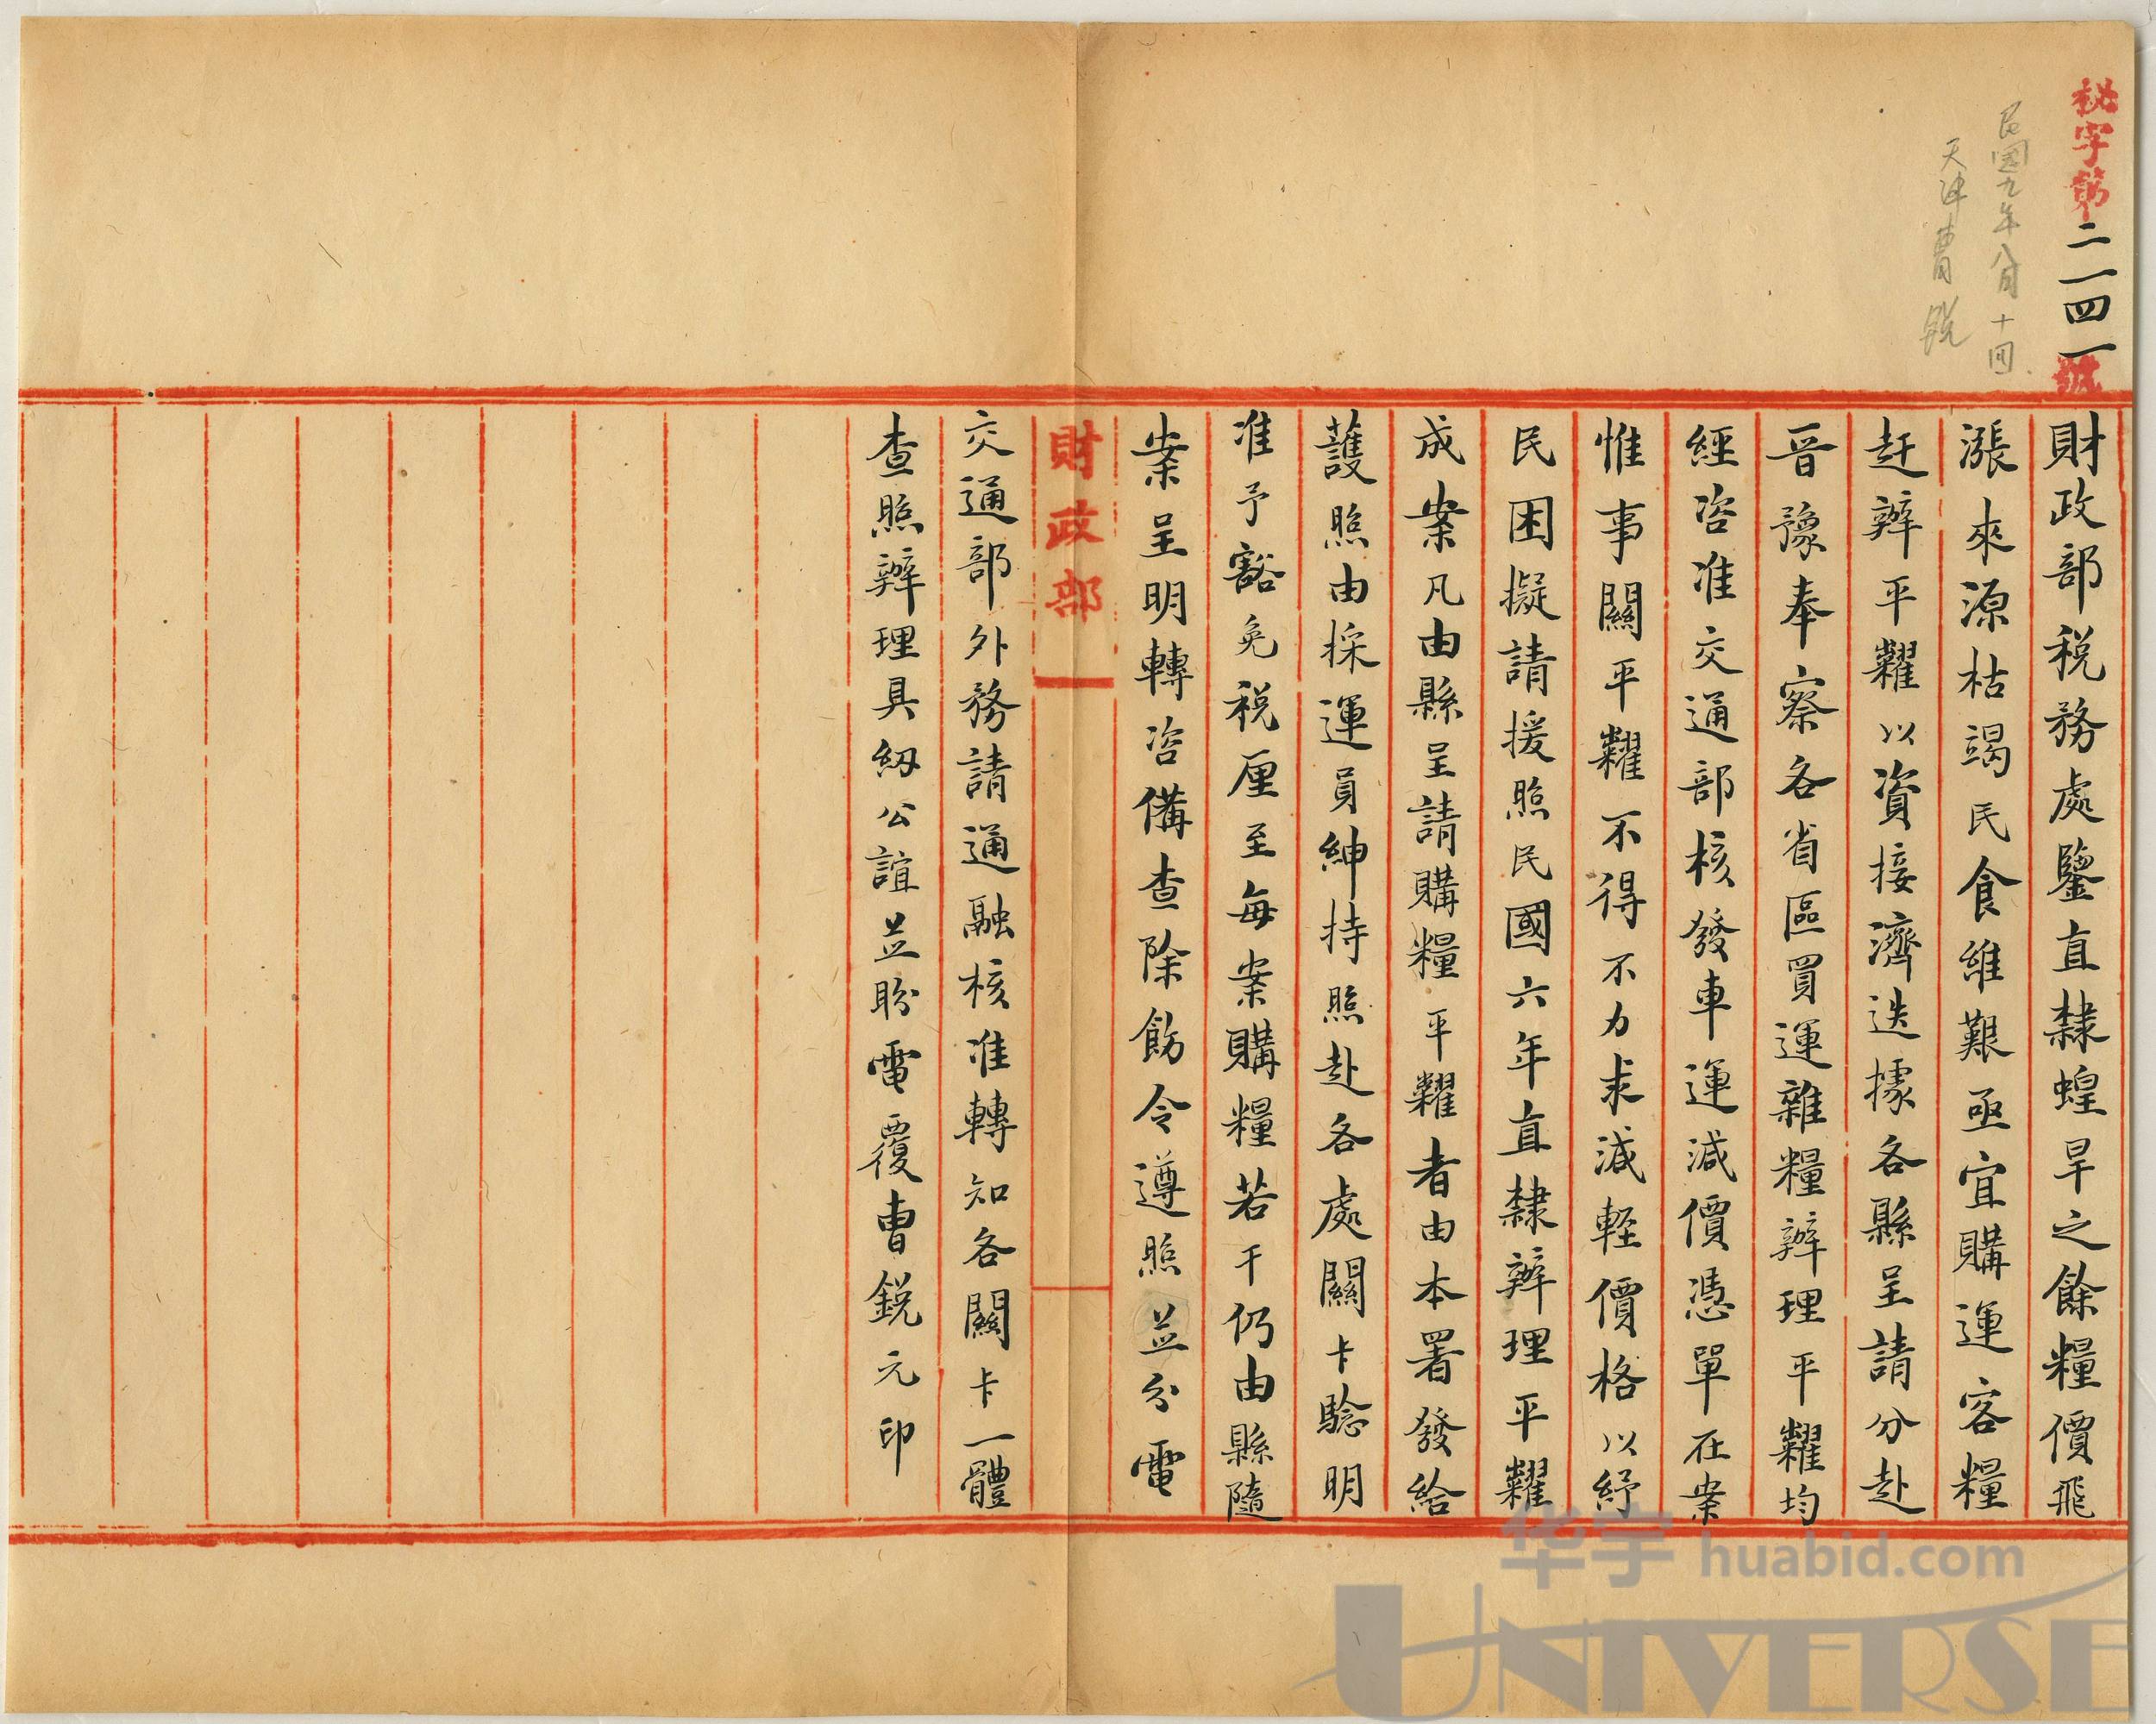 秘字第二一四一號
民國九年八月十四
天津曹銳
財政部税務處鑒直隸蝗旱之餘糧價飛
漲來源枯竭民食維艱亟宜購運客糧
赶辦平糶以資接濟迭據各縣呈請分赴
晉豫奉察各省區買運雜糧辦理平糶均
經咨准交通部核發車運減價憑單在案
惟事關平糶不得不力求減輕價格以紓
民困擬請援照民國六年直隸辦理平糶
成案凡由縣呈請購糧平糶者由本署發給
護照由採運員紳持照赴各處關卡驗明
准予豁免税厘至每案購糧若干仍由縣隨
案呈明轉咨備查除飭令遵照並分電
財政部
交通部外務請通融核准轉知各關卡一體
查照辦理具紉公誼並盼電覆曹銳元印
华宇 huabid.com
UNIVERSE